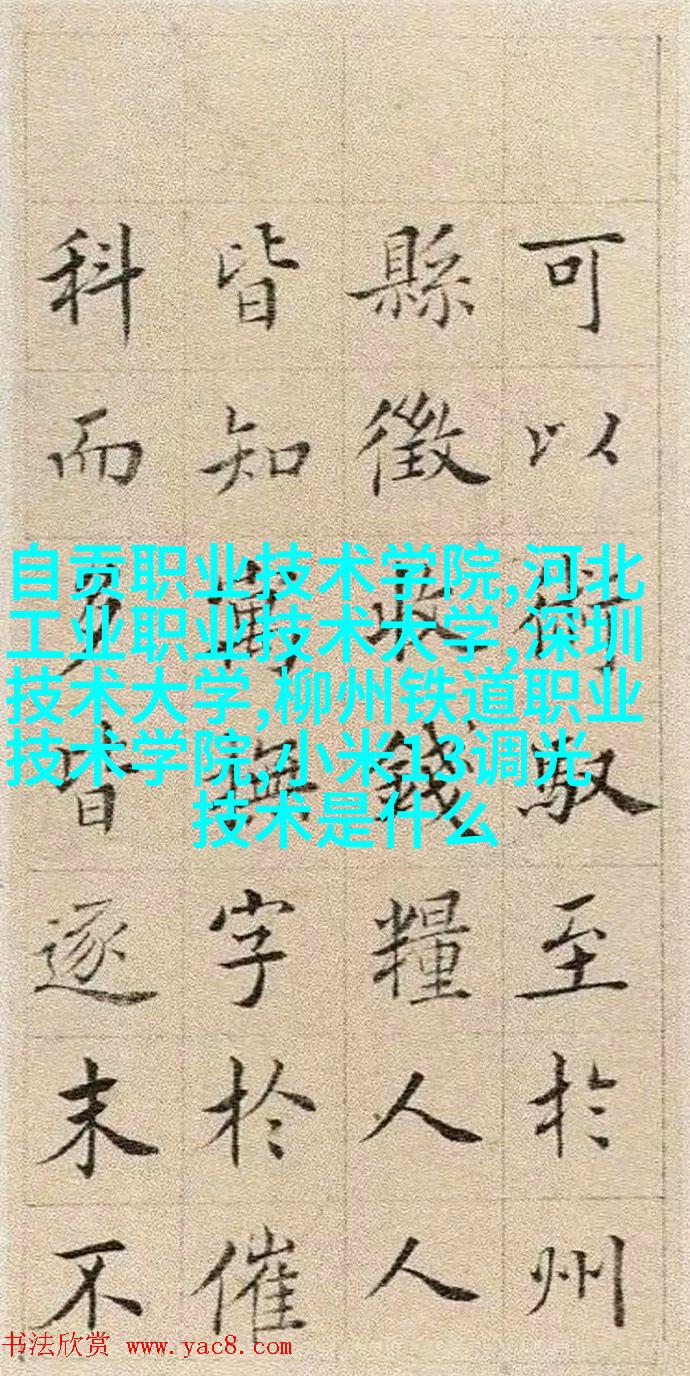 可以術馭至於州
縣徵收錢糧人人
皆知寓撫字於催
科而皆逐末不
自贡职业技术学院,河北
工业职业技术大学,深圳
技术大学,柳州铁道职业
技术学院,小米13调光
技术是什么
书法欣赏 www.yac8.com